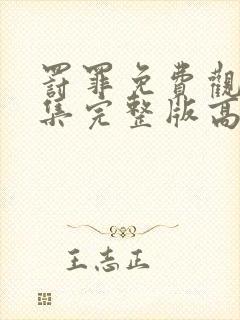 罰罪免費觀
集完整版高
王志正